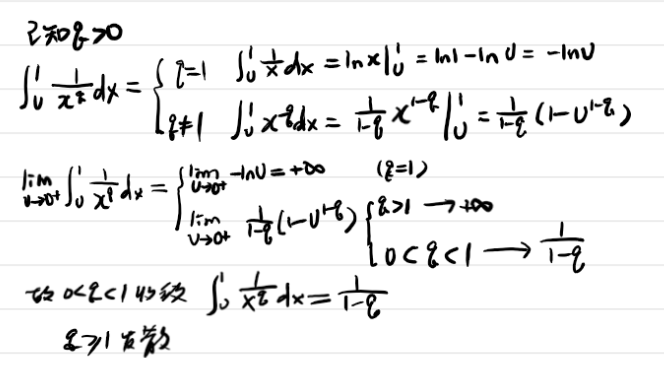 已知q>0
∫_u^1 1/x^q dx = { q=1 ∫_u^1 1/x dx = lnx|_u^1 = ln1-lnu = -lnu
q≠1 ∫_u^1 x^-q dx = 1/(1-q) x^(1-q)|_u^1 = 1/(1-q) (1-u^(1-q))
lim u→0+ ∫_u^1 1/x^q dx = { lim u→0+ -lnu = +∞ (q=1)
lim u→0+ 1/(1-q) (1-u^(1-q)) { q>1 → +∞
0<q<1 → 1/(1-q)
故 0<q<1 收敛 ∫_0^1 1/x^q dx = 1/(1-q)
q≥1 发散